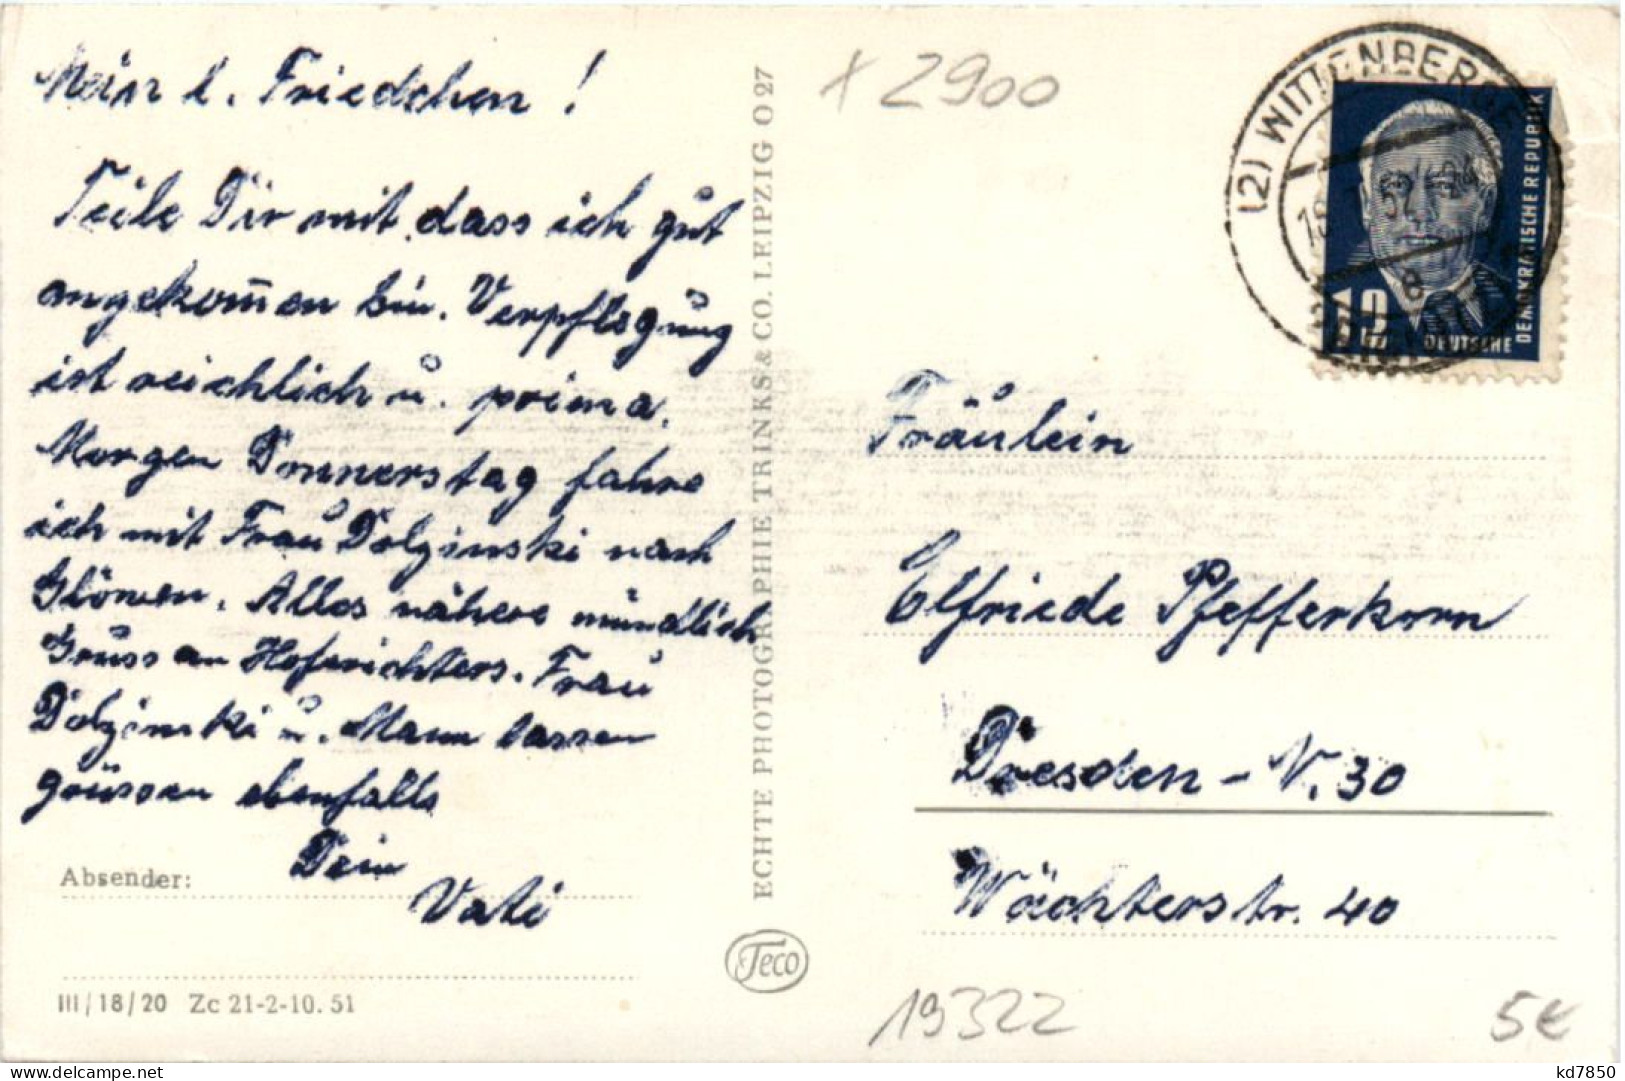 Mein l. Friedchen !
Teile Dir mit dass ich gut
angekom̅en bin. Verpflegung
ist reichlich u. prima.
Morgen Donnerstag fahre
ich mit Frau Dolginski nach
Glöwen. Alles nähere mündlich
Gruss an Hofrichters. Frau
Dolginski u. Mann lassen
grüssen ebenfalls
Dein
Vati
Absender:
III/18/20 Zc 21-2-10. 51
ECHTE PHOTOGRAPHIE TRINKS & CO. LEIPZIG O 27
Teco
x 2900
(2) WITTENBERGE
52
8
12
DEUTSCHE
DEMOKRATISCHE REPUBLIK
Fräulein
Elfriede Pfefferkorn
Dresden - N. 30
Wächterstr. 40
19322
5€
kd7850